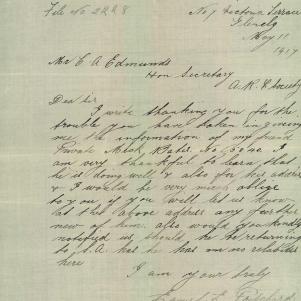 File No 2228 No 7 Victoria Terrace
Glenelg
May 11
1917
Mr C A Edmunds
Hon Secretary
A. R. C Society
Dear Sir
I write thanking you for the
trouble you have taken in giving
me the information of my friend
Private Alck. No I
am very thankful to learn that
he is doing well & also for his address
& I would be very much oblige
to you if you will let us know
at the above address any further
news of him. also would you kindly
notified us should he be returning
to S.A. has he has no relatives
here
I am yours truly